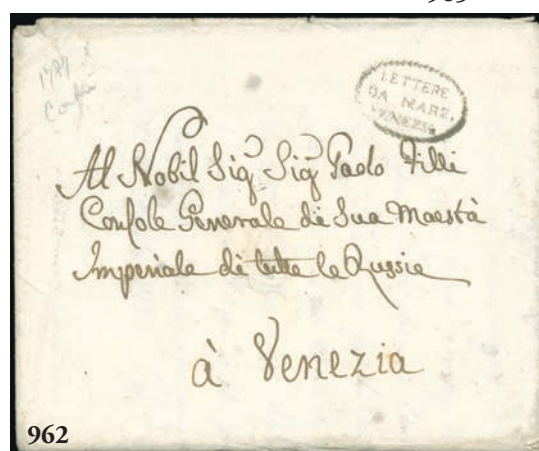 1787
Corfù
LETTERE
DA MARE
VENEZIA
Al Nobil Sigʳ Sigʳ Paolo
Console Generale di Sua Maestà
Imperiale di tutte le Russie
à Venezia
962